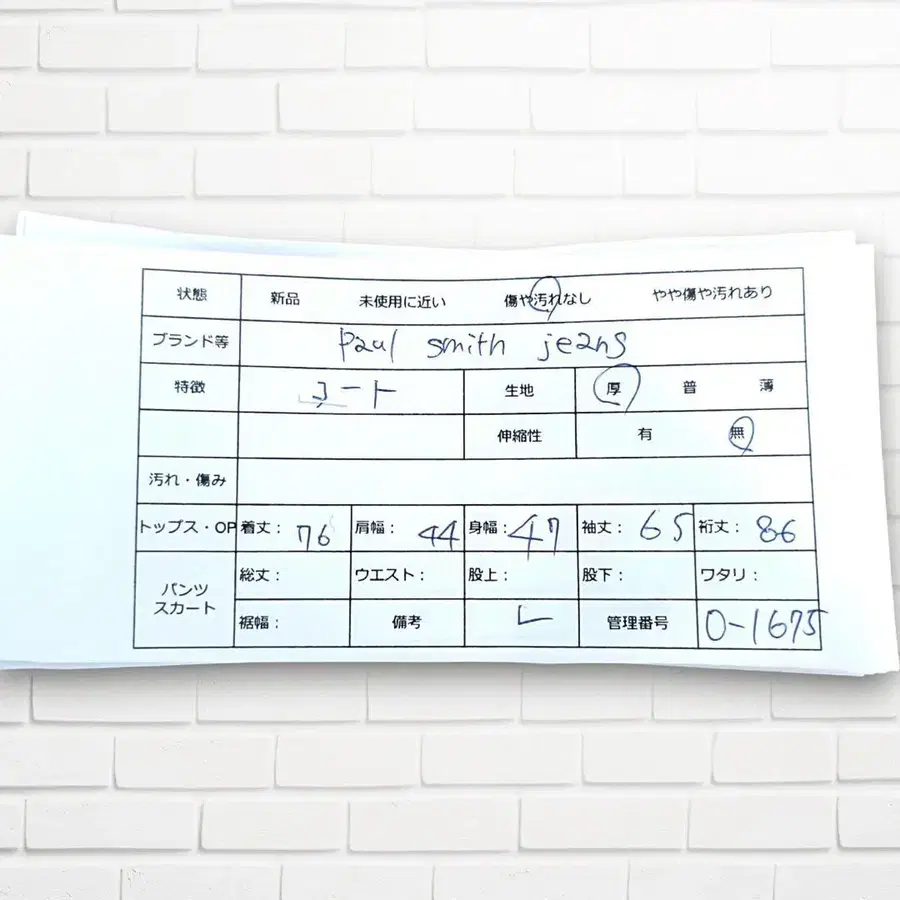 状態 新品 未使用に近い 傷や汚れなし やや傷や汚れあり
ブランド等 Paul smith jeans
特徴 コート 生地 厚 普 薄
伸縮性 有 無
汚れ・傷み
トップス・OP 着丈: 76 肩幅: 44 身幅: 47 袖丈: 65 裄丈: 86
パンツ
スカート
総丈: ウエスト: 股上: 股下: ワタリ:
裾幅: 備考 L 管理番号 0-1675